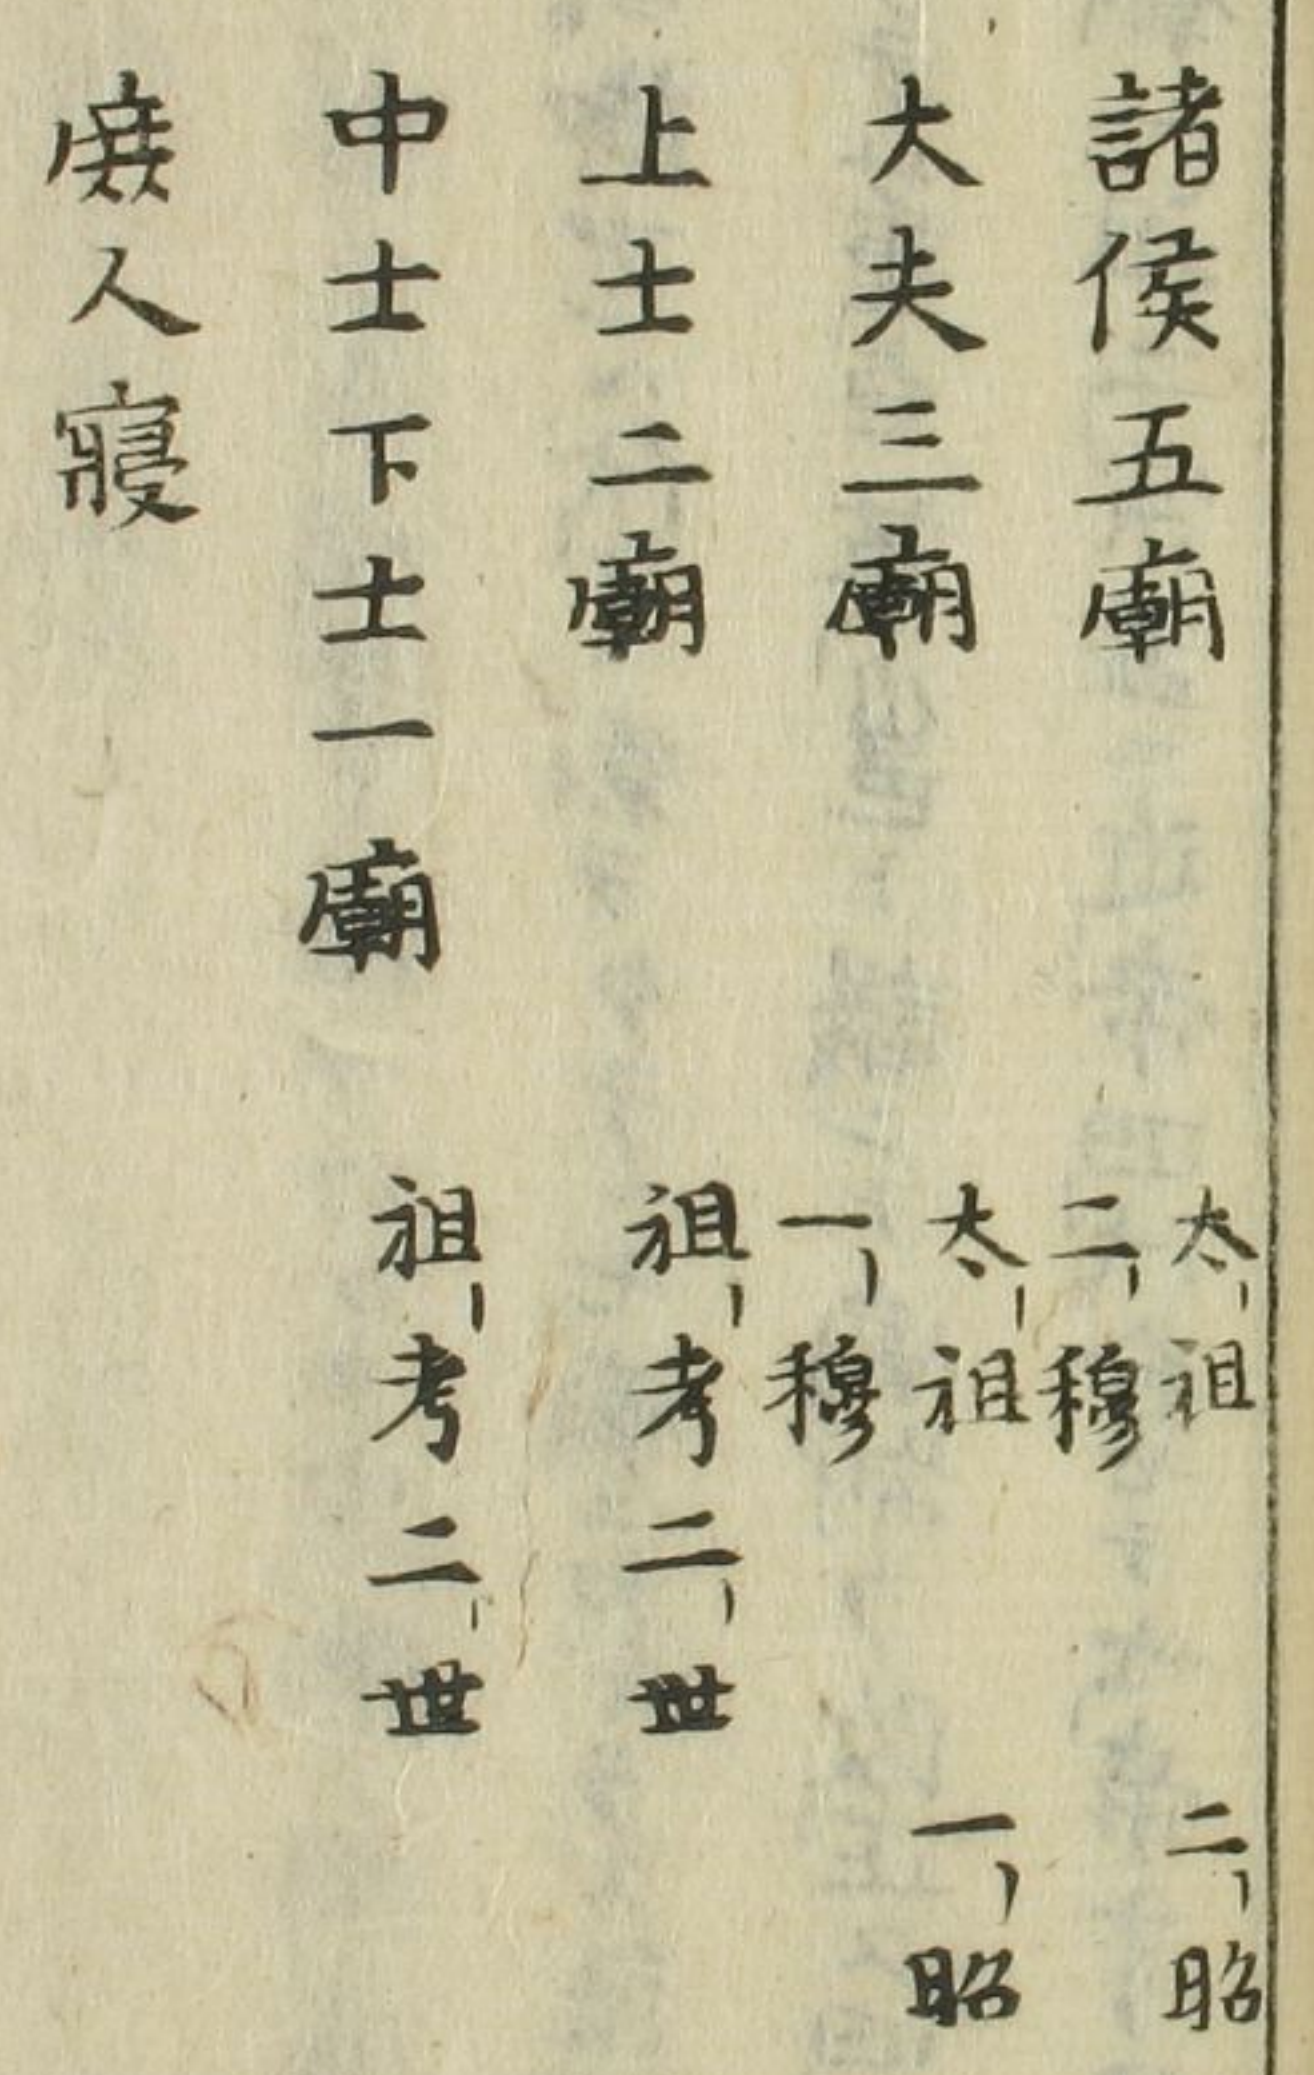 諸侯五廟
太祖
二昭
二穆
大夫三廟
太祖
一昭
一穆
上士二廟
祖考二世
中士下士一廟
祖考二世
庶人寢